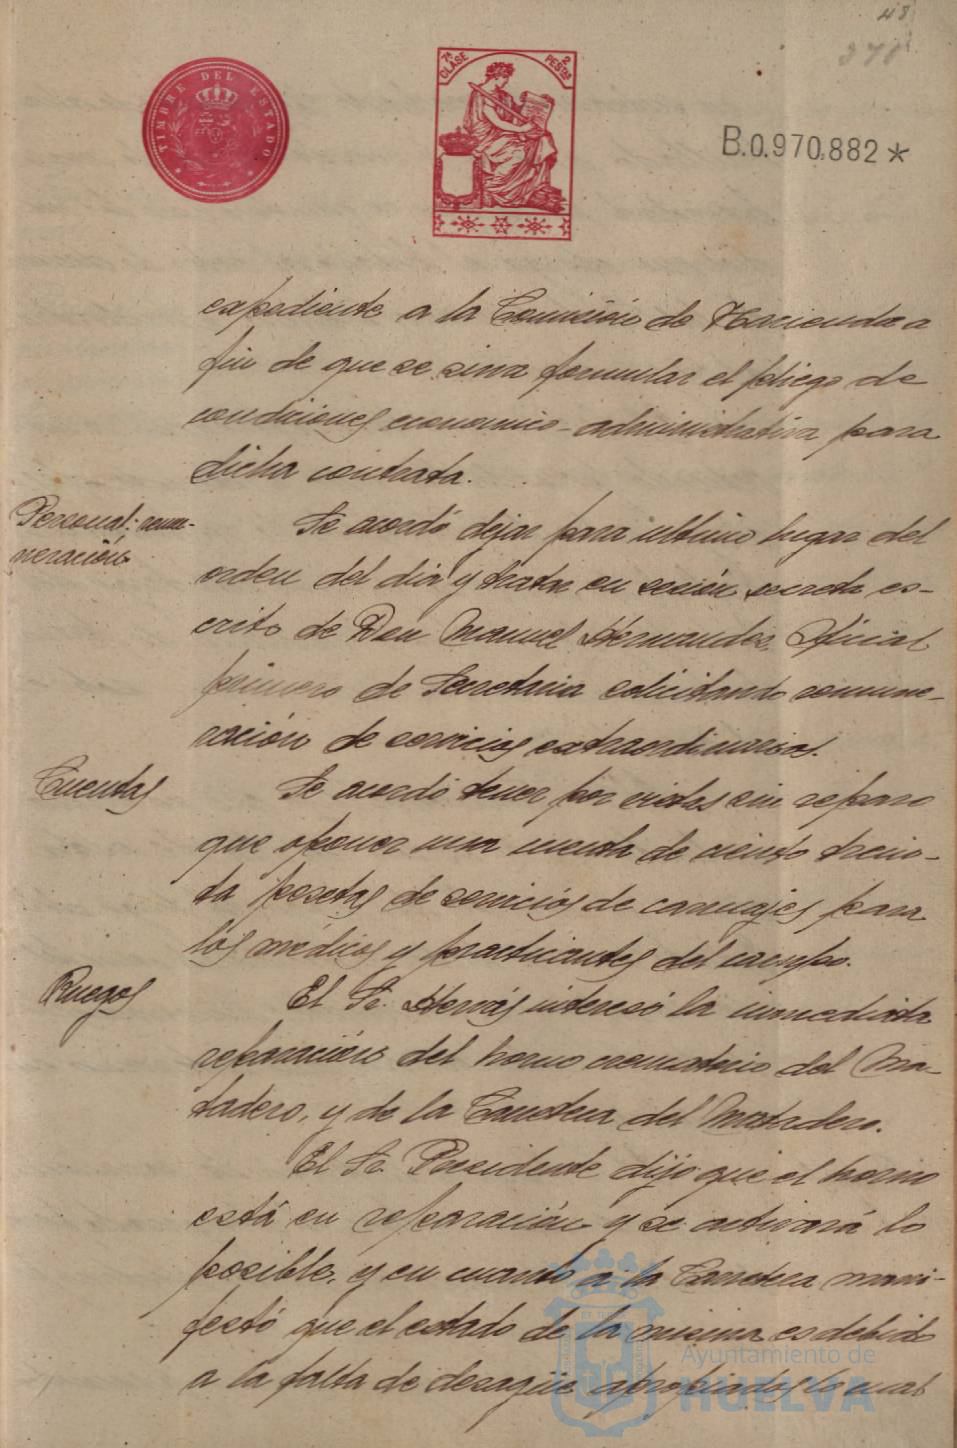 48
378
TIMBRE DEL ESTADO
7ª CLASE
2 PESTAS
B.0.970.882*
expediente a la Comisión de Hacienda a
fin de que se sirva formular el pliego de
condiciones economico-administrativa para
dicha contrata.
Personal: remu-
neración
Se acordó dejar para ultimo lugar del
orden del dia y tratar en sesión secreta es-
crito de Don Manuel Hernandez, Oficial
primero de Secretaria solicitando remune-
ración de servicios extraordinarios.
Cuentas
Se acordó tener por vistas sin reparo
que oponer una cuenta de ciento trein-
ta pesetas de servicios de carruajes para
los médicos y practicantes del campo.
Ruegos
El Sr. Hervás interesó la inmediata
reparación del horno crematorio del Ma-
tadero, y de la Carretera del Matadero.
El Sr. Presidente dijo que el horno
está en reparación y se activará lo
posible, y en cuanto a la Carretera mani-
festó que el estado de la misma es debido
a la falta de desagüe apropiados lo cual
Ayuntamiento de
HUELVA